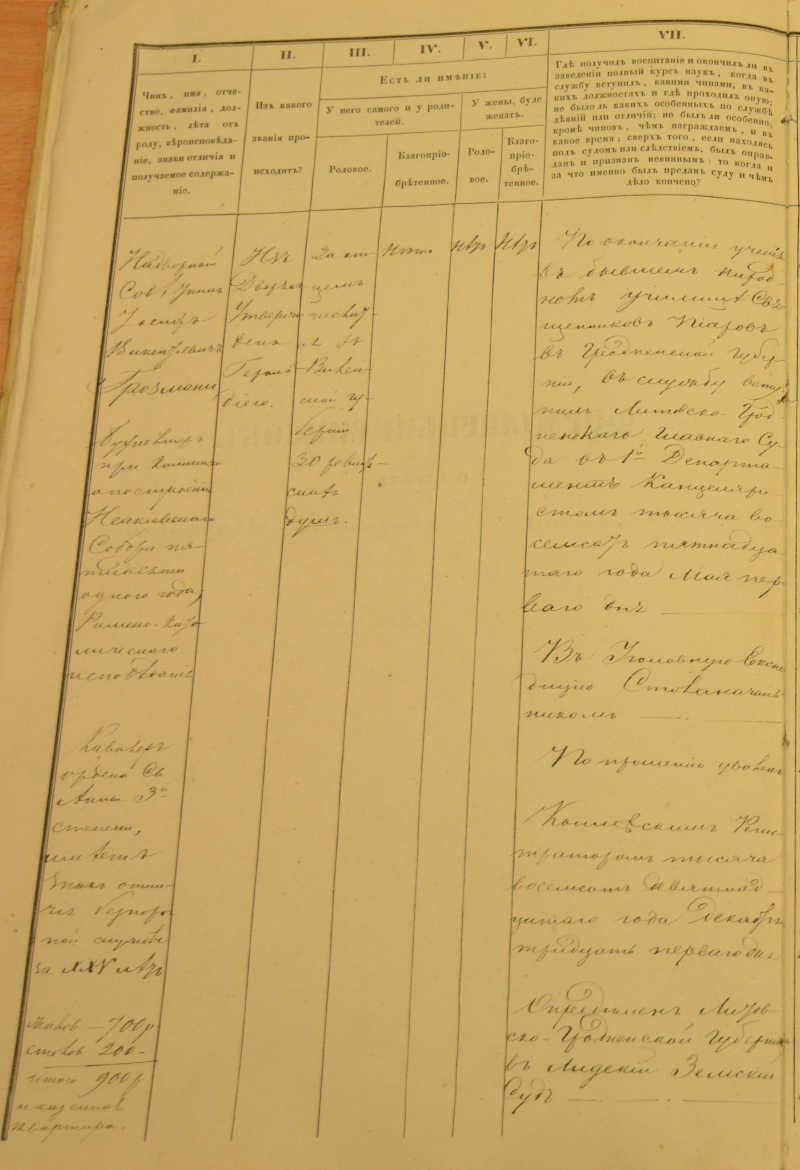 I.
II.
III.
IV.
V.
VI.
VII.
Чинъ, имя, отче-
ство, фамилія, дол-
жность, лѣта отъ
роду, вѣроисповѣда-
ніе, знаки отличія и
получаемое содержа-
ніе.
Изъ какого
званія про-
исходитъ?
Есть ли имѣніе:
У него самого и у роди-
телей.
У жены, буде
женатъ.
Родовое.
Благопріо-
брѣтенное.
Родо-
вое.
Благо-
пріо-
брѣ-
тенное.
Гдѣ получилъ воспитаніе и окончилъ ли въ
заведеніи полный курсъ наукъ, когда въ
службу вступилъ, какими чинами, въ ка-
кихъ должностяхъ и гдѣ проходилъ оную;
не было ль какихъ особенныхъ по службѣ
дѣяній или отличій; не былъ ли особенно,
кромѣ чиновъ, чѣмъ награждаемъ, и въ
какое время; сверхъ того, если находясь
подъ судомъ или слѣдствіемъ, былъ оправ-
данъ и признанъ невиннымъ: то когда и
за что именно былъ преданъ суду и чѣмъ
дѣло кончено?
Надворный
Совѣтникъ
Іосифъ
Викентьевичъ
Бухгалтеръ
при Коммисіи
о построеніи
Исакіевскаго
Собора пя-
тидесяти
одного года,
Римско-Като-
лическаго
исповѣданія
Кавалеръ
ордена Св.
Анны 3й
степени,
имѣетъ
Знакъ отли-
чія безпороч-
ной службы
за XXV лѣтъ
Жалов – 700 р
столов 200 –
итого 900 р
и казенная
квартира.
Изъ
Дворянъ
За от-
цемъ
въ
Вилен-
ской гу-
берніи
30 ревиж-
скихъ
душъ.
нѣтъ
нѣтъ
нѣтъ
По окончаніи ученія
въ бывшемъ народ-
номъ училищѣ Свя-
щенниковъ Піаровъ
въ Гродненской Губер-
ніи, въ службу всту-
пилъ Литовско-Грод-
ненскаго Главнаго Су-
да въ 1й Департа-
ментъ Канцеляри-
стомъ тысяча во-
семьсотъ пятнадца-
таго года Мая пер-
ваго дня
Въ Уголовную Экспе-
дицію Столоначаль-
никомъ
По прошенію уволенъ
Коллежскимъ Регис-
траторомъ тысяча
восемьсотъ девятнад-
цатаго года Декабря
тридцать перваго дня
Опредѣленъ Литов-
ско-Гродненской Губерніи
въ Лидскій Земскій
Судъ